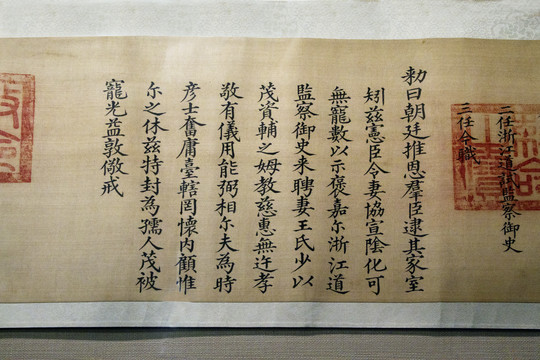 二任浙江道監察御史
三任今職
勑曰朝廷推恩羣臣逮其家室
矧兹憲臣令妻協宣陰化可
無寵數以示褒嘉尓浙江道
監察御史来聘妻王氏少以
茂資輔之姆教慈惠無迕孝
敬有儀用能弼相尓夫為時
彦士奮庸臺轄罔懷内顧惟
尓之休兹特封為孺人茂被
寵光益敦儆戒